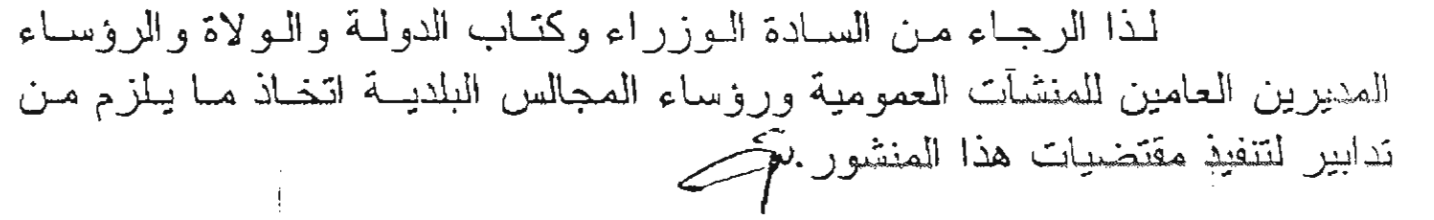 لذا الرجاء من السادة الوزراء وكتاب الدولة والولاة والرؤساء
المديرين العامين للمنشآت العمومية ورؤساء المجالس البلدية اتخاذ ما يلزم من
تدابير لتنفيذ مقتضيات هذا المنشور.